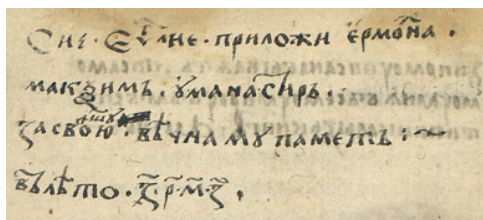 Сие · Еѵⷢ҇лие · приложи ермонⷯа ·
маѯимь · ꙋ манаⷭ҇тирь ·
за свою дш҃ꙋ вѣчна мꙋ паметь :~
вь лѣто · ҂з҃ · р҃ · м҃ · з҃ ·